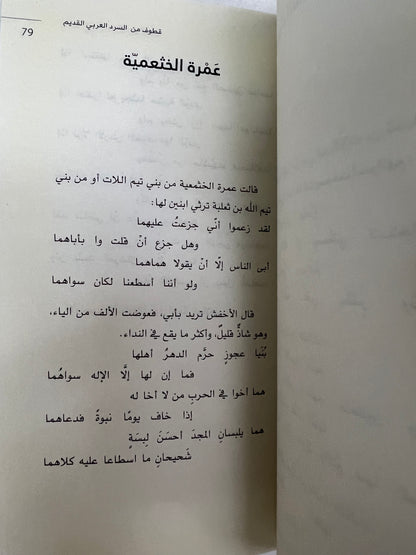 قطوف من السرد العربي القديم
79
عَمْرة الخثعميّة
قالت عمرة الخثعمية من بني تيم اللات أو من بني
تيم الله بن ثعلبة ترثي ابنين لها:
لقد زعموا أنّي جزعتُ عليهما
وهل جزع أنْ قلت وا بأباهما
أبى الناس إلّا أنْ يقولا هماهما
ولو أننا أسطعنا لكان سواهما
قال الأخفش تريد بأبي، فعوضت الألف من الياء،
وهو شاذٌ قليلٌ، وأكثر ما يقع في النداء.
بُنَيا عجوزٍ حرَّم الدهرُ أهلها
فما إن لها إلَّا الإله سواهُما
هما أخوا في الحربِ من لا أخا له
إذا خاف يومًا نبوةً فدعاهما
هما يلبسانِ المجدَ أحسَنَ لِبسَةٍ
شَحيحانِ ما اسطاعا عليه كلاهما